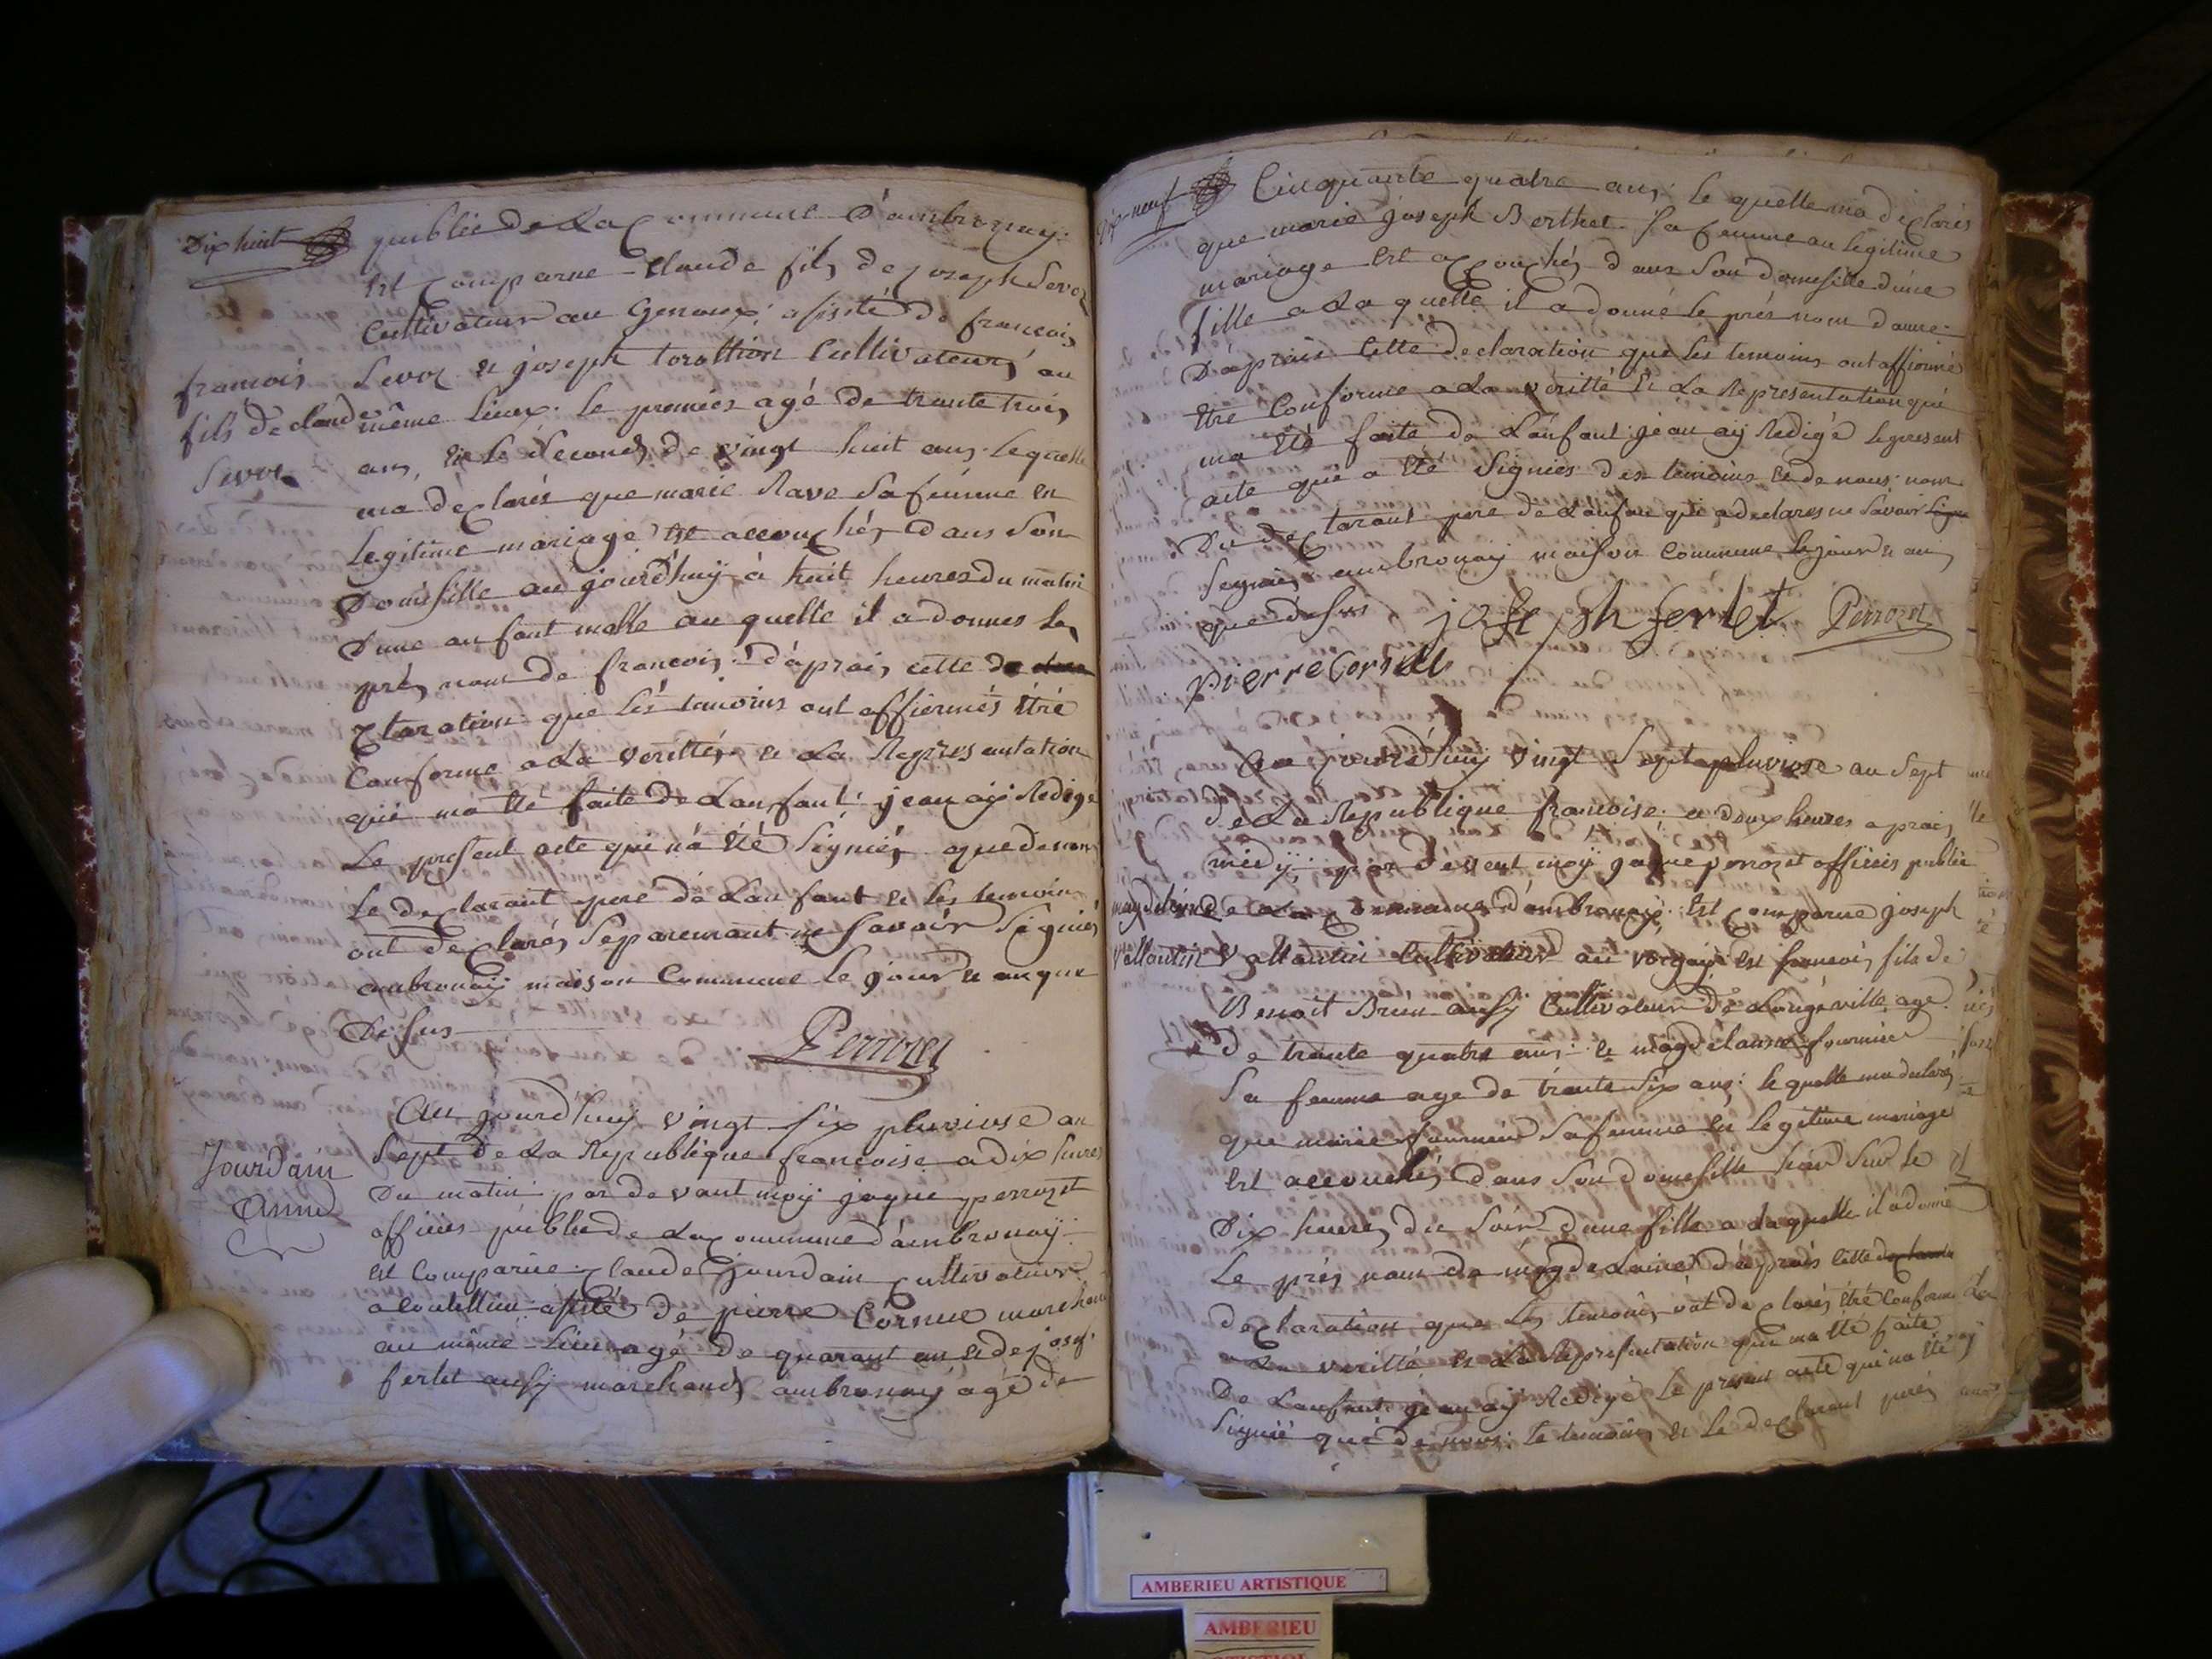 Dix huit
publie de La Commune D'ambronay.
Est Comparue Claude fils de joseph Sevoz
Cultivateur au Genoux; asisté de francois
francois
fils de claude
Sevoz
Sevoz et joseph torattion Cultivateurs au
même Lieux. le premier agé de trante trois
ans, et le Second de vingt huit ans. lequelle
ma declarés que marie Rave Sa femme en
Legitime mariage est accouchés dans Son
Domisille au jourd'huy à huit heures du matin
D'une anfant malle au quelle il a donnes le
prés nom de francois. d'aprais cette de
claration que Les temoins ont affiermés être
Conforme a La verittés et La Represantation
qui ma été faite de L'anfant. jean ay Redigé
Le present acte qui n'a été Signiés que de nous
Le declarant pere de L'anfant et les temoins
ont declarés Separemant ne Savoir Signiés
ambronay maison Commune Le jour et an que
Desus
Perrozet
Jourdain
Anne
Au jourd'huy vingt six pluviose an
Sept de La Republique francoise a dix heures
Du matin par devant moy jaque perrozet
officies publie de La Commune d'ambronay.
est Comparue Claude Jourdain Cultivateur
a Coutellieu asisté de pierre Cornue marchand
au même Lieu agé de quarant an et de josep
ferlet ausy marchand ambronay agé de
Dix-neuf
Cinquante quatre ans. le quelle ma declarés
que marie joseph Berthet Sa femme an legitime
mariage est accouchés dans Son domisille d'une
fille a La quelle il a donné le prés nom d'anne.
D'aprais Cette declaration que les temoins ont affiermé
être Conforme a La veritté et La Representation qui
ma été faite de L'anfant jean ay Redigé le present
acte qui a été Signies des temoins et de nous non
Du declarant pere de L'anfan qui a declares ne Savoir Signe
Segnies ambronay maison Commune le jour et an
que desus
joseph ferlet
Perrozet
pierre Cornue
Au jourd'huy vingt Sept pluviose an Sept
de La Republique francoise. a deux heures aprais
midy; par devent moy jaque perrozet officies publie
magdelaine
vallantin
de La Commune d'ambronay; Est Comparue joseph
vallantin Cultivateur au vorgey et francois fils de
Benoit Brun ausy Cultivateur de Longeville age
de trante quatre ans. et magdelaine fournier
Sa femme age de trante Six ans; le quelle ma declarés
que marie fournier Sa femme en Legitime mariage
Est accouchés dans Son domisille hier Sur le
Dix heures du Soir d'une fille a La quelle il a donné
Le prés nom de magdelaine d'aprais Cette
declaration que les temoins ont declarés être Conforme
a La veritté et La Representation qui ma été faite
De L'anfant jean ay Redigé le present acte qui n'a été
Signié que de nous. le temoins et le declarant perés
AMBERIEU ARTISTIQUE
AMBERIEU
ARTISTIQUE